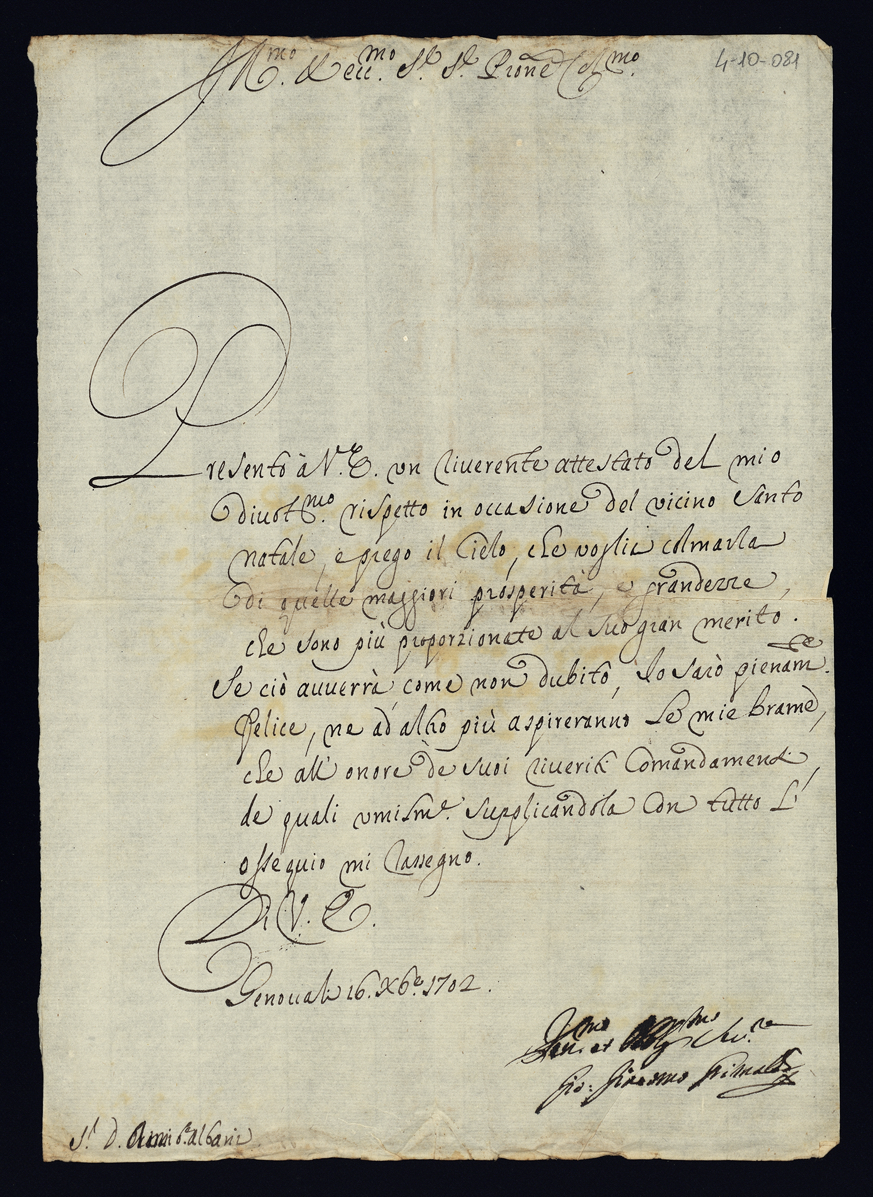 Ill.mo et Ecc.mo Sr. Sr. Prone Col.mo
4-10-081
Presento à V. E. un riuerente attestato del mio
diuot.mo rispetto in occasione del vicino Santo
natale, e priego il Cielo, che voglia colmarla
di quelle maggiori prosperità, e grandezze,
che sono più proporzionate al suo gran merito.
Se ciò auuerrà come non dubito, Io sarò pienam.te
felice, ne ad altro più aspireranno Le mie brame,
che all' onore de suoi riueriti Comandamenti,
de quali umilme. supplicandola Con tutto L'
ossequio mi rassegno.
Di V. E.
Genoua li 16. Xbe. 1702.
et Obblig.mo Ser.re
Gio: Giacomo Grimaldi
Sr. D. Albani